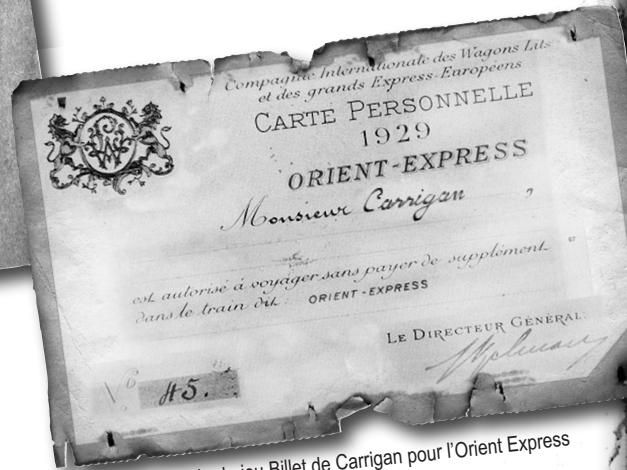 Compagnie Internationale des Wagons Lits
et des grands Express-Européens
CARTE PERSONNELLE
1929
ORIENT-EXPRESS
Monsieur Carrigan,
est autorisé à voyager sans payer de supplément
dans le train dit : ORIENT-EXPRESS
LE DIRECTEUR GÉNÉRAL:
No 45.
Billet de Carrigan pour l'Orient Express